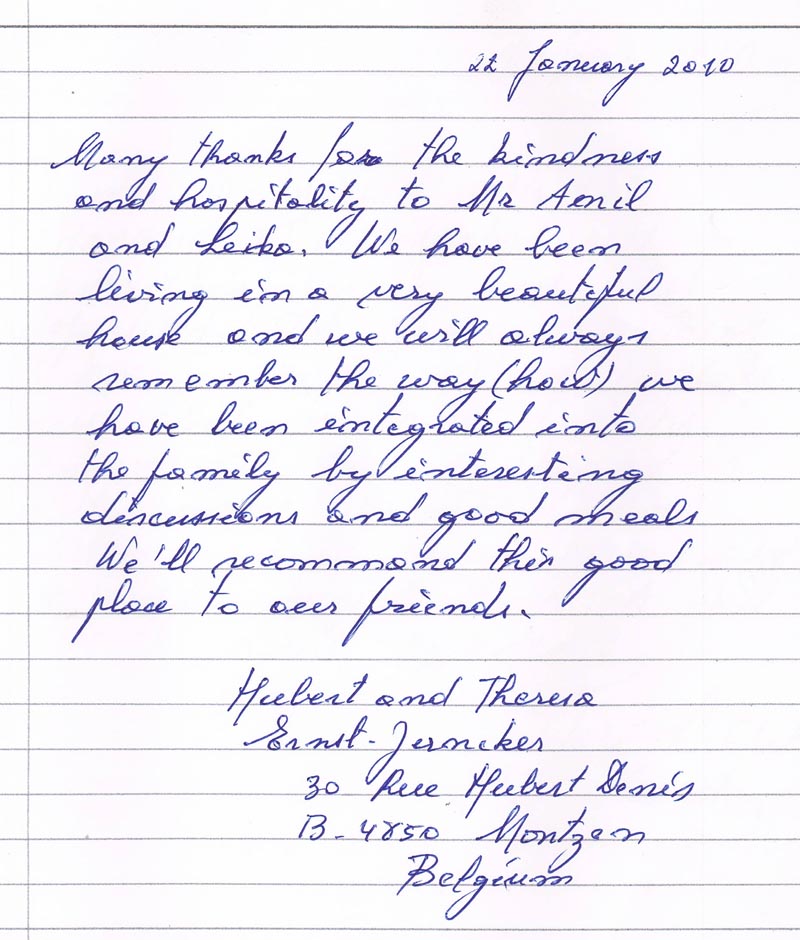 22 January 2010
Many thanks for the kindness
and hospitality to Mr Amil
and Leika. We have been
living in a very beautiful
house and we will always
remember the way (how) we
have been integrated into
the family by interesting
discussions and good meals
We'll recommand this good
place to our friends.
Hubert and Theresa
Ernst-Jerneker
30 Rue Hubert Denis
B-4850 Montzen
Belgium